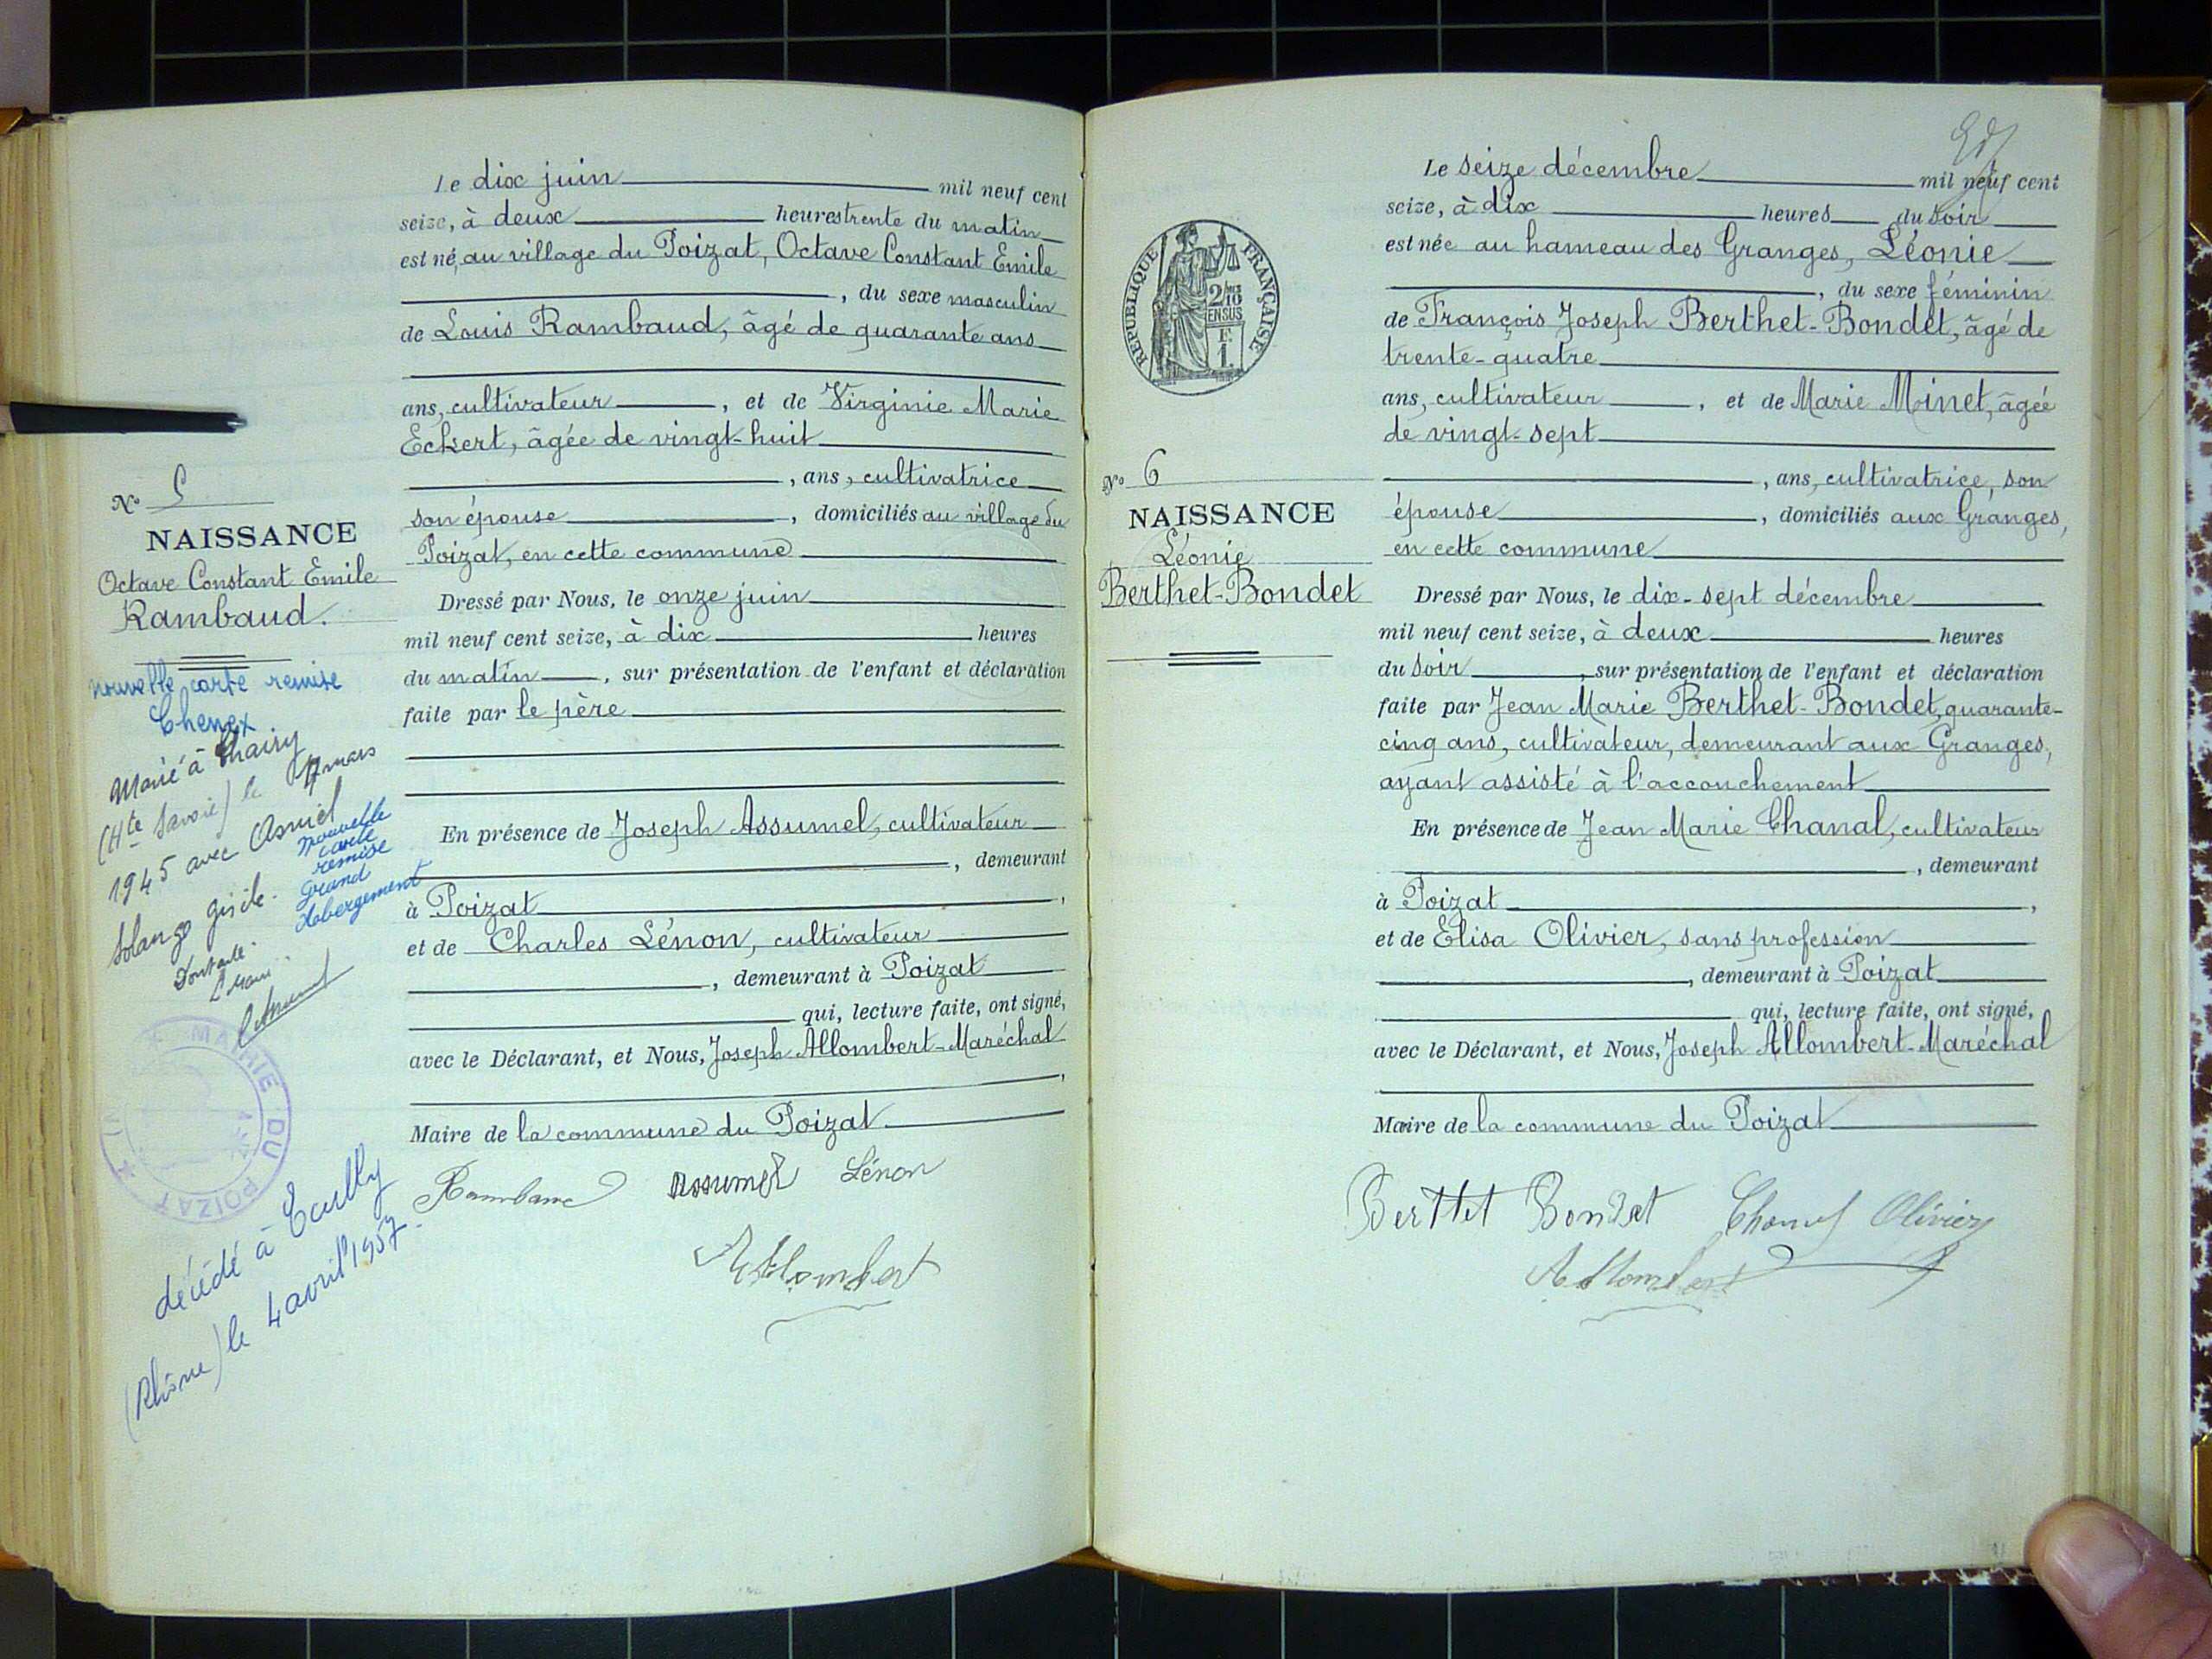 Le dix juin mil neuf cent
seize, à deux heures trente du matin
est né, au village du Poizat, Octave Constant Emile
, du sexe masculin
de Louis Rambaud, âgé de quarante ans
ans, cultivateur, et de Virginie Marie
Eckert, âgée de vingt-huit
, ans, cultivatrice
son épouse, domiciliés au village du
Poizat, en cette commune
Dressé par Nous, le onze juin
mil neuf cent seize, à dix heures
du matin, sur présentation de l'enfant et déclaration
faite par le père
En présence de Joseph Assumel, cultivateur
, demeurant
à Poizat,
et de Charles Lénon, cultivateur
, demeurant à Poizat
qui, lecture faite, ont signé,
avec le Déclarant, et Nous, Joseph Allombert-Maréchal
,
Maire de la commune du Poizat
Rambaud Assumel Lénon
Allombert
No 5
NAISSANCE
Octave Constant Emile
Rambaud.
nouvelle carte remise
Chenex
Marié à
(Hte Savoie) le 17 mars
1945 avec
Solange Gisèle.
Dont acte.
Le Maire
nouvelle
carte
remise
Grand
Abergement
MAIRIE DU POIZAT
décédé à Ecully
(Rhône) le 4 avril 1957.
Le seize décembre mil neuf cent
seize, à dix heures du soir
est née au hameau des Granges, Léonie
, du sexe féminin
de François Joseph Berthet-Bondet, âgé de
trente-quatre
ans, cultivateur, et de Marie Minet, âgée
de vingt-sept
, ans, cultivatrice, son
épouse, domiciliés aux Granges,
en cette commune
Dressé par Nous, le dix-sept décembre
mil neuf cent seize, à deux heures
du soir, sur présentation de l'enfant et déclaration
faite par Jean Marie Berthet-Bondet, quarante-
cinq ans, cultivateur, demeurant aux Granges,
ayant assisté à l'accouchement
En présence de Jean Marie Chanal, cultivateur
, demeurant
à Poizat,
et de Elisa Olivier, sans profession
, demeurant à Poizat
qui, lecture faite, ont signé,
avec le Déclarant, et Nous, Joseph Allombert-Maréchal
Maire de la commune du Poizat
Berthet Bondet Chanal Olivier
Allombert
REPUBLIQUE FRANÇAISE
2/10
EN SUS
F.
1.
No 6
NAISSANCE
Léonie
Berthet-Bondet